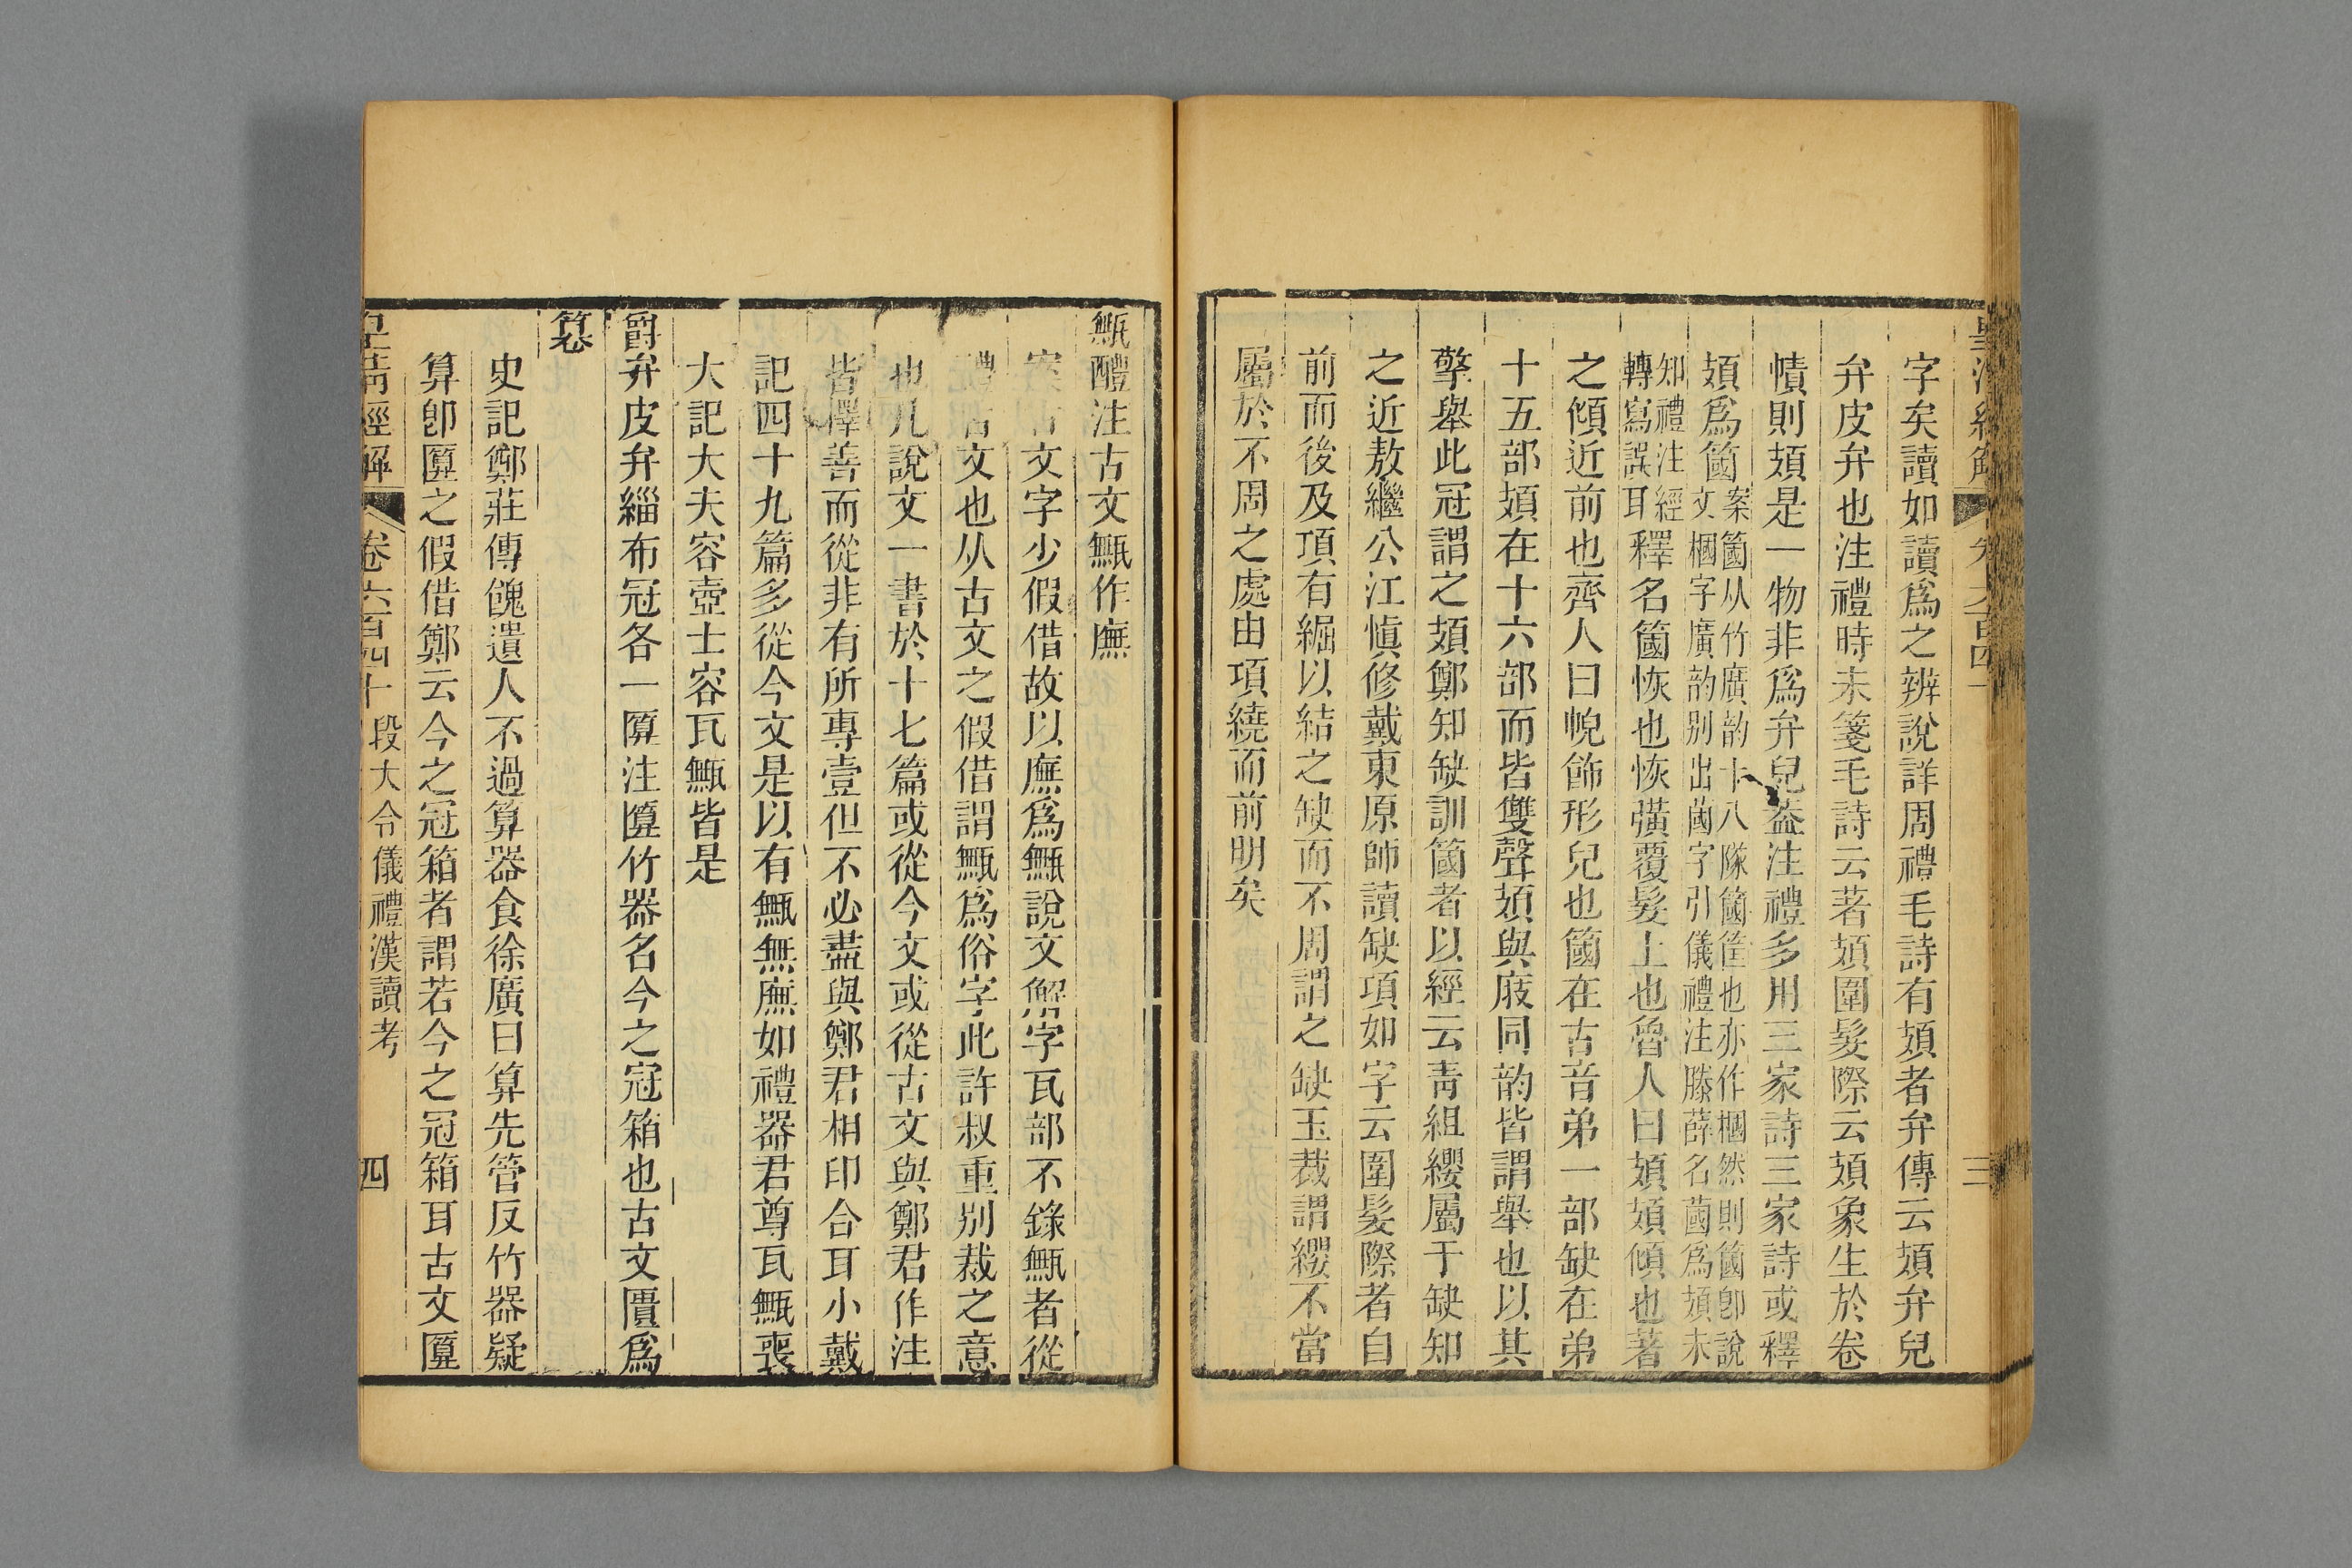 字矣讀如讀爲之辨說詳周禮毛詩有頍者弁傳云頍弁皃
弁皮弁也注禮時未箋毛詩云著頍圍髮際云頍象生於卷
幘則頍是一物非爲弁皃葢注禮多用三家詩三家詩或釋
頍爲簂案簂从竹廣韵十八隊簂筐也亦作槶然則簂卽說
文槶字廣韵别出蔮字引儀禮注滕薛名蔮爲頍未
知禮注經
轉寫誤耳釋名簂恢也恢彉覆髮上也魯人曰頍頍傾也著
之傾近前也齊人曰帨飾形皃也簂在古音弟一部缺在弟
十五部頍在十六部而皆雙聲頍與庪同韵皆謂舉也以其
擎舉此冠謂之頍鄭知缺訓簂者以經云靑組纓屬于缺知
之近敖繼公江愼修戴東原師讀缺項如字云圍髮際者自
前而後及項有䋎以結之缺而不周謂之缺玉裁謂纓不當
屬於不周之處由項繞而前明矣
甒醴注古文甒作廡
文字少假借故以廡爲甒說文解字瓦部不錄甒者從
禮古文也从古文之假借謂甒爲俗字此許叔重别裁之意
也凡說文一書於十七篇或從今文或從古文與鄭君作注
皆擇善而從非有所專壹但不必盡與鄭君相印合耳小戴
記四十九篇多從今文是以有甒無廡如禮器君尊瓦甒喪
大記大夫容壺士容瓦甒皆是
爵弁皮弁緇布冠各一匴注匴竹器名今之冠箱也古文匴爲
篹
史記鄭莊傳餽遺人不過算器食徐廣曰算先管反竹器疑
算卽匴之假借鄭云今之冠箱者謂若今之冠箱耳古文匴
皇淸經解 卷六百四十 段大令儀禮漢讀考 四